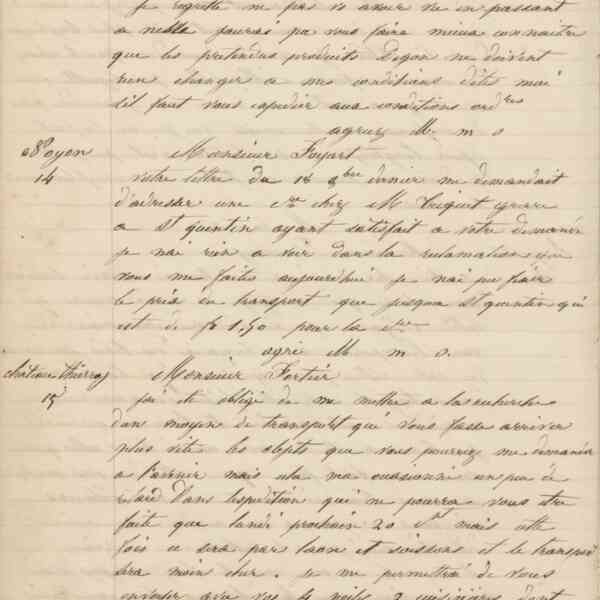 je regrette ne pas vous avoir vu en passant
a pourais pu vous faire mieux connaitre
que les pretendus produits ne doivent
rien changer a mes conditions dites moi
s'il faut vous expedier aux conditions ordres
agreez M m s
Noyon Monsieur Foyart
14 Votre lettre du 18 8bre dernier me demandait
d'adresser une chez M
a St quentin ayant satisfait a votre demande
je n'ai rien a voir dans la reclamation que
vous me faites aujourdhui je n'ai pu fixer
le prix du transport que jusqua St quentin qui
est de fr 1,50 pour la
agré M m s.
château thierry Monsieur Fortier
15 j'ai été obligé de me mettre a la recherche
dans moyen de transport qui vous fasse arriver
plus vite les objets que vous pourriez me demander
a l'avenir mais cela ma occasionné un peu de
retard dans l'expedition qui ne pourra vous etre
faite que lundi prochain 20 mais cette
fois ce sera par laon et soissons et le transport
sera moin cher. je me permettrai de vous
envoyer avec vos 4 2 cuisinières dont